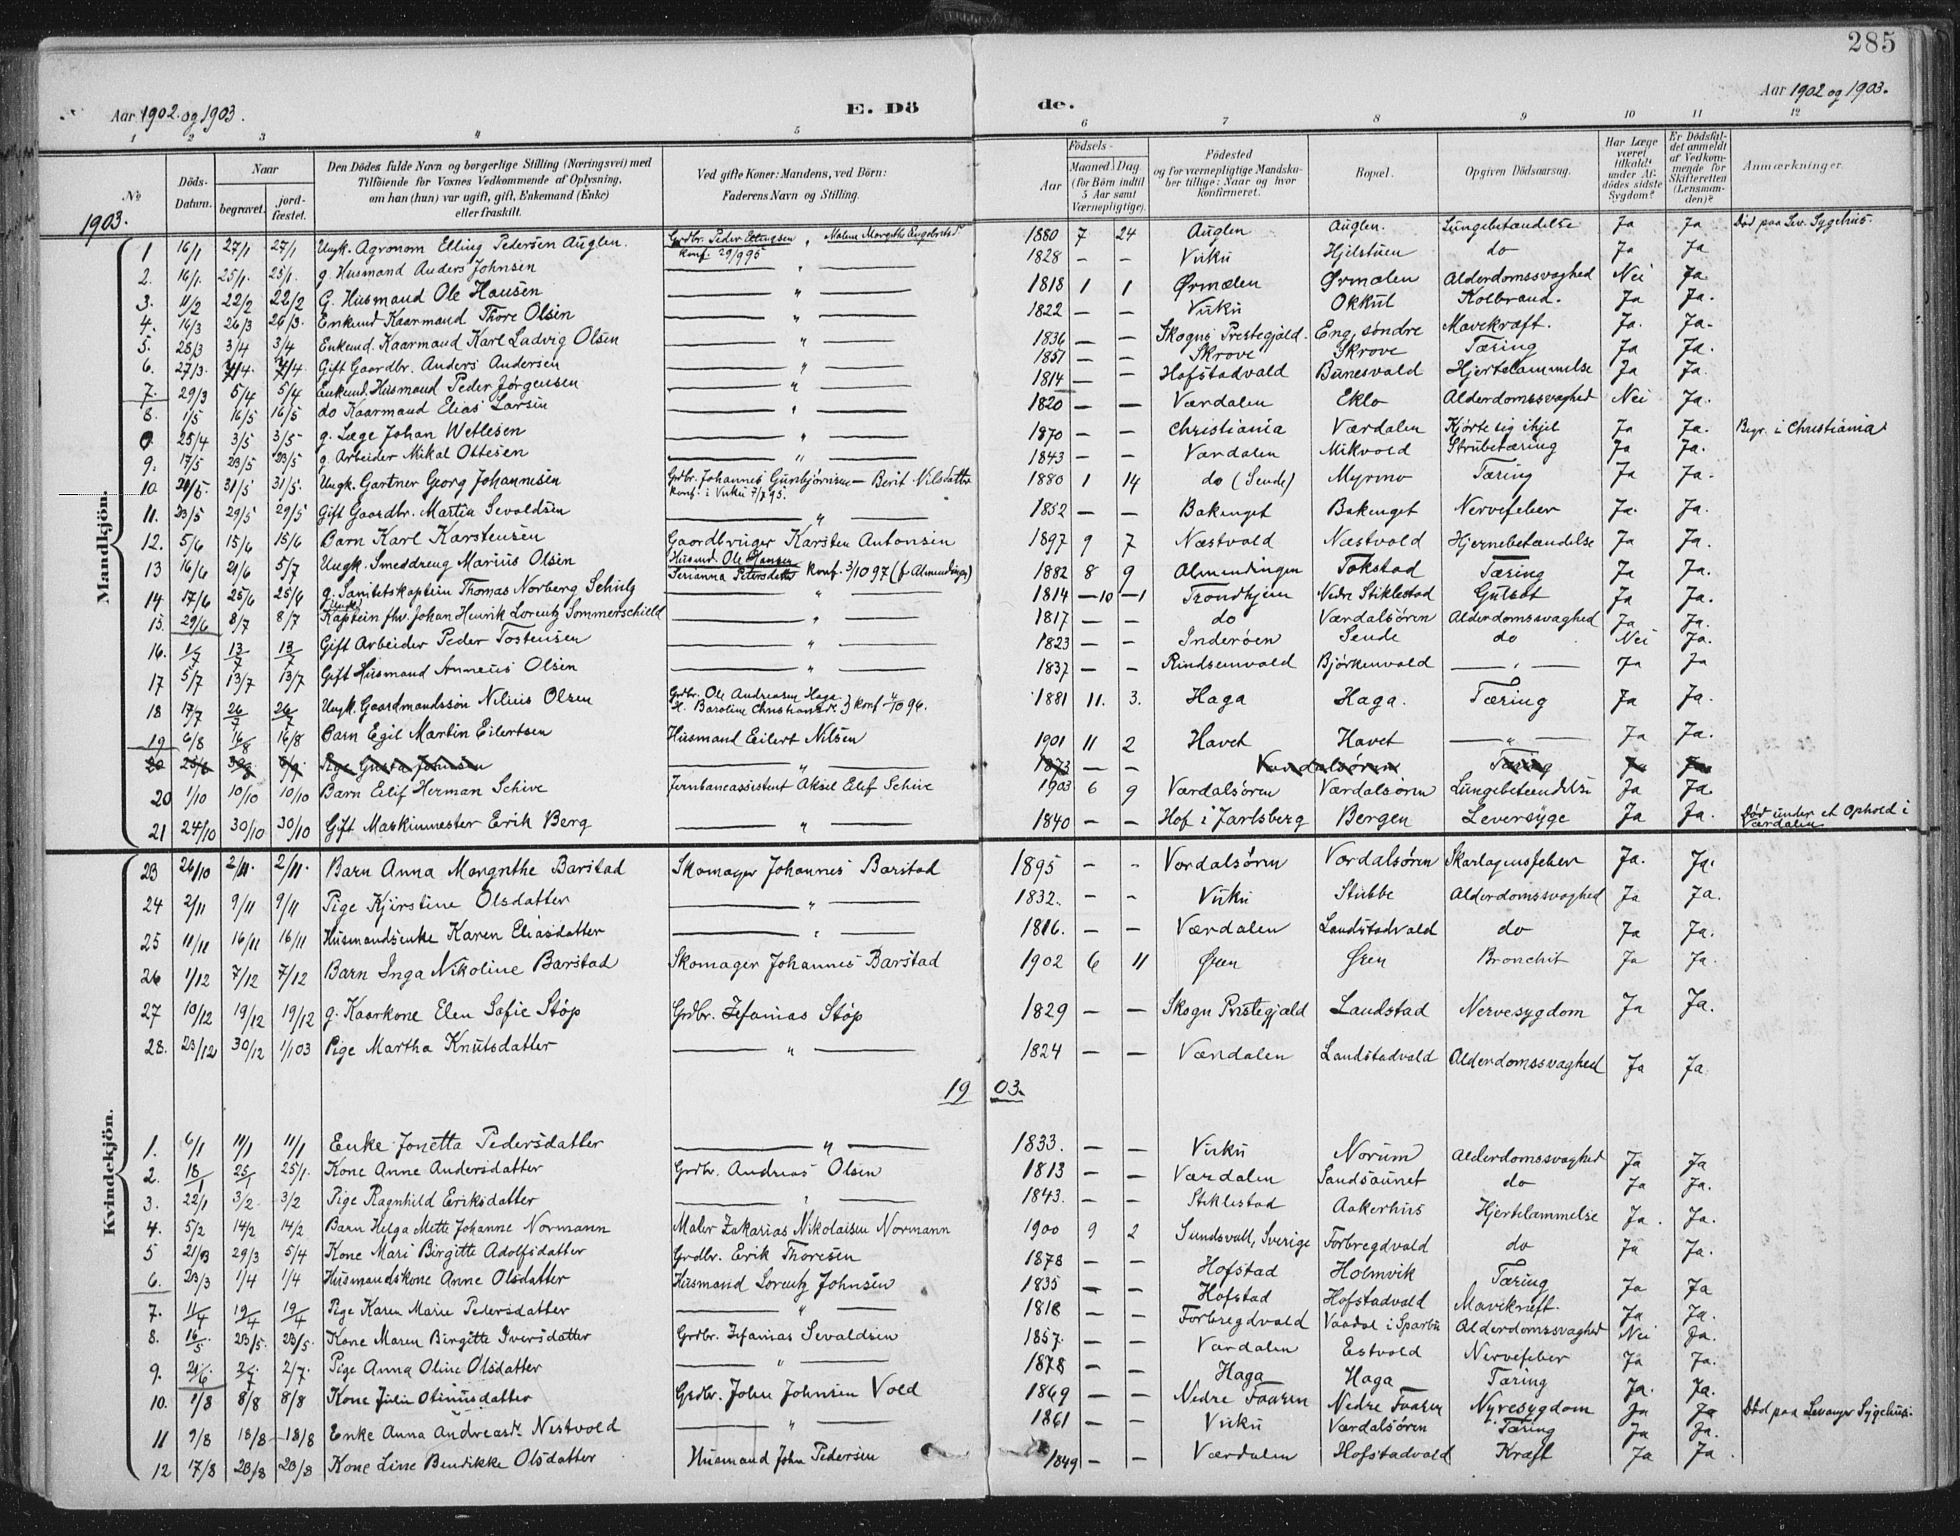 285
Aar 1902 og 1903. E. Dö de. Aar 1902 og 1903.
1 2 3 4 5 6 7 8 9 10 11 12
No
Döds-Datum.
Naar
begravet.
jord-fæstet.
Den Dödes fulde Navn og borgerlige Stilling (Næringsvei) med
Tilföiende for Voxnes Vedkommende af Oplysning,
om han (hun) var ugift, gift, Enkemand (Enke)
eller fraskilt.
Ved gifte Koner: Mandens, ved Börn:
Faderens Navn og Stilling.
Födsels-
Aar
Maaned. Dag.
(for Börn indtil
5 Aar samt
Værnepligtige).
Födested
og for værnepligtige Mandsku-
ber tillige: Naar og hvor
konfirmeret.
Bopæl.
Opgiven Dödsaarsag.
Har Læge
været
tilkaldt
under Af-
dödes sidste
Sygdom?
Er Dödsfal-
det anmeldt
af Vedkom-
mende for
Skifteretten
(Lensman-
den)?
Anmærkninger.
1903.
Mandkjön.
1 16/1 27/1 27/1 Ungk. Agronom Elling Pedersen Auglen. Grdbr. Peder Ellingsen Malene Margrethe konf. 29/9 95 1880 7 24 Auglen Auglen. Lungebetændelse Ja Ja Død paa Lev. Sygehus.
2. 16/1 25/1. 25/1. g. Husmand Anders Johnsen — " — 1828 — — Vuku Hjelstuen do Ja Ja.
3. 11/2 22/2 22/2 G. Husmand Ole Hansen — " — 1818 1 1 Ørmælen Ørmælen Alderdomssvaghed Nei Ja.
4. 16/3 26/3 26/3. Enkemd Kaarmand Thore Olsen — " — 1822 — — Vuku Okkul Kolbrand. Ja Ja.
5. 25/3 3/4 3/4 Enkemd. Kaarmand Karl Ludvig Olsen — " — 1836 — — Skogns Prestegjæld. Eng, søndre Mavekræft. Ja. Ja.
6. 27/3. 4/4. 4/4. Gift Gaardbr. Anders Andersen — " — 1851 — — Skrove Skrove Tæring Ja Ja.
7. 29/3 5/4 5/4 Enkemd. Husmand Peder Jørgensen — " — 1814 — — Hofstadvald Bunesvald Hjertelammelse Ja Ja.
8. 1/5 16/5 16/5 do Kaarmand Elias Larsen — " — 1820 — — Værdalen Eklo Alderdomssvaghed Nei Ja.
25/4 3/5 3/5 g. Læge Johan Wetlesen — " — 1870 — — Christiania Værdalen Kjørte sig ihjel Ja Ja. Begr. i Christiania
9. 17/5 23/5 23/5 g. Arbeider Mikal Ottesen — " — 1843 — — Værdalen Mikvold Strubetæring Ja Ja.
10. 21/5. 31/5 31/5. Ungk. Gartner Georg Johannesen Grdbr. Johannes Gunbjørnsen — Berit Nilsdatter konf. i Vuku 7/7 95. 1880 1 14 do (Sende) Myrmo Tæring Ja Ja.
11. 23/5 29/5 29/5 Gift Gaardbr. Martin Sevaldsen — " — 1852 — — Bakenget Bakenget Nervefeber Ja. Ja.
12. 5/6 15/6 15/6 Barn Karl Karstensen Gaardbruger Karsten Antonsen 1897 9 7 Næstvold Næstvold Hjernebetændelse Ja Ja.
13 16/6 21/6 5/7 Ungk. Smeddreng Marius Olsen Husmd. Ole Hansen Serianna Petersdatter konf. 3/10 97 (f. Almendingen) 1882 8 9 Almendingen Tokstad Tæring Ja Ja.
14 17/6 25/6 25/6 g. Sanitetskaptein Thomas Norberg Schulz — " — 1814 10 1 Trondhjem Nedre Stiklestad Gulsot Ja Ja.
15. 29/6 8/7 8/7 Kaptein fhv. Johan Henrik Lorentz Sommerschield — " — 1817 — — do Værdalsören Alderdomssvaghed Ja Ja.
16. 1/7 13/7 13/7 Gift Arbeider Peder Tostensen — " — 1823 — — Inderøen Sende do Nei Ja.
17 5/7 13/7 13/7 Gift Husmand Anneus Olsen — " — 1837 — — Rindsemvald Bjørkenvald — " — Ja Ja
18 17/7 26/7 26/7 Ungk. Gaardmandssøn Nilius Olsen Grdbr. Ole Andreasen Haga. H. Baroline Christiansdr. } konf. 4/10 96. 1881 11. 3. Haga Haga. Tæring Ja Ja.
19 6/8 16/8 16/8 Barn Egil Martin Eilertsen Husmand Eilert Nilsen 1901 11 2 Havet Havet — " — Ja Ja.
20 Pige Gusta Johnsen — " — 1873 — — Værdalsören Tæring Ja Ja
20 1/10 10/10 10/10 Barn Eilif Herman Schive Jernbaneassistent Aksel Eilif Schive 1903 6 9 Værdalsören Værdalsören Lungebetændelse Ja Ja.
21 24/10 30/10 30/10 Gift Maskinmester Erik Berg — " — 1840 — — Hof i Jarlsberg Bergen Leversyge Ja Ja. Død under et Ophold i Værdalen
Kvindekjön.
23 26/10 2/11. 2/11. Barn Anna Margrethe Barstad Skomager Johannes Barstad 1895 — - Værdalsören Værdalsören Skarlagensfeber Ja. Ja.
24 2/11 9/11 9/11 Pige Kjerstine Olsdatter — " — 1832. — - Vuku Stubbe Alderdomssvaghed Ja Ja.
25 11/11 16/11 16/11 Husmandsenke Karen Eliasdatter — " — 1816. — — Værdalen Landstadvald do Ja Ja.
26 1/12 7/12 7/12 Barn Inga Nikoline Barstad Skomager Johannes Barstad 1902 6 11 Øren Øren Bronchit Ja Ja.
27 10/12 19/12 19/12 g. Kaarkone Elen Sofie Støp Grdbr. Zefanias Støp 1829 — — Skogn Prestegjæld Landstad Nervesygdom Ja Ja.
28. 23/12 30/12 1/1 03 Pige Martha Knutsdatter — " — 1824 — — Værdalen Landstadvald Alderdomssvaghed Ja Ja.
19 03.
1. 6/1 11/1 11/1 Enke Jonetta Pedersdatter — " — 1833. — — Vuku Norum Alderdomssvaghed Ja Ja
2. 18/1 25/1 25/1. Kone Anne Andersdatter Grdbr. Andreas Olsen 1813 — — Værdalen Sandsaunet do Ja Ja.
3. 22/1 3/2. 3/2 Pige Ragnhild Eriksdatter — " — 1843. — — Stiklestad Aakerhus Hjertelammelse Ja. Ja.
4. 5/2 14/2 14/2 Barn Helga Mette Johanne Normann Maler Zakarias Nikolaisen Normann 1900 9 2 Sundsvall, Sverige Forbregdvald do Ja Ja.
5 21/3 29/3 5/4 Kone Mari Birgitte Adolfsdatter Grdbr. Erik Thoresen 1878 — — Hofstad Holmvik Tæring Ja Ja
6. 23/3 1/4 1/4 Husmandskone Anne Olsdatter Husmand Lorentz Johnsen 1835 — — Hofstad Hofstadvald Mavekræft. Ja Ja.
7. 11/4 19/4 19/4 Pige Karen Marie Pedersdatter — " — 1818 — — Forbregdvald Vaadal i Sparbu Alderdomssvaghed Nei Ja.
8. 16/5 23/5. 23/5. Kone Maren Birgitte Iversdatter Grdbr. Zefanias Sevaldsen 1857. — — Værdalen Estvold Nervefeber Ja Ja.
9. 21/6 2/7 2/7. Pige Anna Oline Olsdatter — " — 1878 — — Haga Haga Tæring Ja. Ja.
10. 1/8 8/8 8/8 Kone Julie Otinusdatter Grdbr. John Johnsen Vold 1869 — — Nedre Faaren Nedre Faaren Nyresygdom Ja Ja Død paa Levanger Sygehus.
11 9/8 18/8 18/8 Enke Anna Andreasdr. Nestvold — " — 1861 — — Vuku Værdalsören Tæring Ja Ja.
12 17/8 23/8 23/8 Kone Line Bendikke Olsdatter Husmand John Pedersen 1849 — — Værdalen Hofstadvald Kræft Ja Ja.